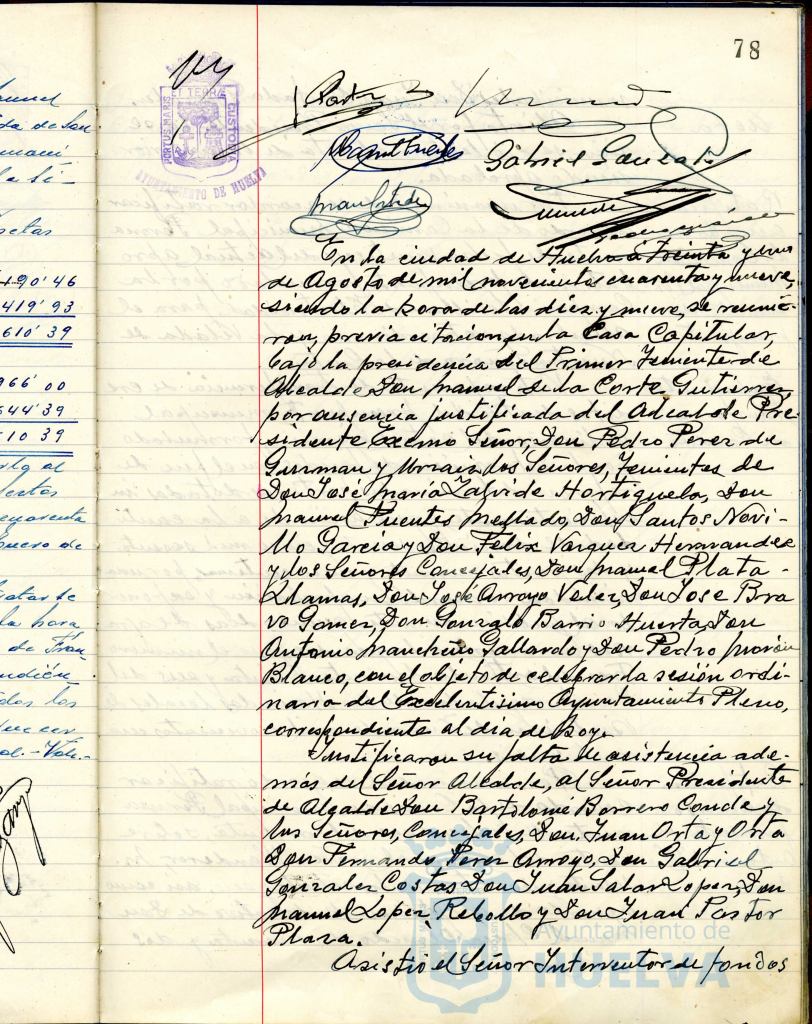 78
PORTUS MARIS ET TERRAE CUSTODIA
AYUNTAMIENTO DE HUELVA
Gabriel Gonzalez
En la ciudad de Huelva a treinta y uno
de Agosto de mil novecientos cuarenta y nueve,
siendo la hora de las diez y nueve, se reunie-
ron, previa citacion, en la Casa Capitular,
bajo la presidencia del Primer Teniente de
Alcalde Don Manuel de la Corte Gutierrez,
por ausencia justificada del Alcalde Pre-
sidente Excmo Señor, Don Pedro Perez de
Guzman y Urzaiz, los Señores, Tenientes de
Don José María Zalvide Hortiguela, Don
Manuel Fuentes Mellado, Don Santos Novi-
llo Garcia y Don Felix Vazquez Hernandez
y los Señores Concejales, Don Manuel Plata
Llamas, Don José Arroyo Velez, Don Jose Bra
vo Gomez, Don Gonzalo Barrio Huerta, Don
Antonio Mancheño Gallardo y Don Pedro Morón
Blanco, con el objeto de celebrar la sesión ordi-
naria del Excelentisimo Ayuntamiento Pleno,
correspondiente al dia de hoy.
Justificaron su falta de asistencia ade-
más del Señor Alcalde, al Señor Presidente
de Algalde Don Bartolomé Borrero Conde y
los Señores, Concejales, Don Juan Orta y Orta
Don Fernando Perez Arroyo, Don Gabriel
Gonzalez Costas Don Juan Salas Lopez, Don
Manuel Lopez Rebollo y Don Juan Pastor
Plaza.
Asistió el Señor Interventor de fondos
Ayuntamiento de
HUELVA
190'46
419'93
610'39
966 00
644'39
10 39